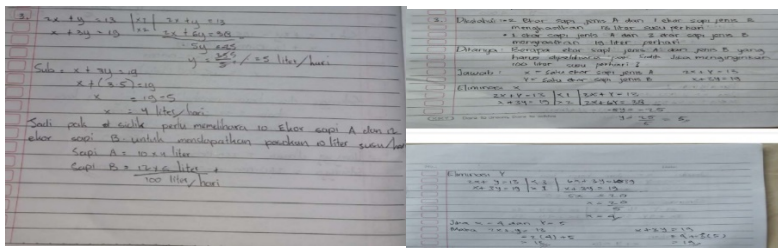 3. 2x + y = 13 | x1 | 2x + y = 13
x + 3y = 19 | x2 | 2x + 6y = 38
5y = 25
y = 25/5 / = 5 liter/hari
Sub = x + 3y = 19
x + (3.5) = 19
x = 19 - 5
x = 4 liter/hari
Jadi pak sidik perlu memelihara 10 Ekor sapi A dan 12
ekor sapi B untuk mendapatkan pasokan liter susu/hari
Sapi A = 10 x 4 liter
Sapi B = 12 x 5 liter +
100 liter/hari
3. Diketahui : 2 Ekor sapi jenis A dan 1 ekor sapi jenis B
menghasilkan 13 liter susu perhari
1 ekor sapi jenis A dan 3 ekor sapi jenis B
menghasilkan 19 liter perhari
Ditanya : Berapa ekor sapi jenis A dan jenis B yang
harus dipelihara pak Sidik jika menginginkan
100 liter susu perhari ?
Jawab : x = satu ekor sapi jenis A 2x + y = 13
y = satu ekor sapi jenis B x + 3y = 19
Eliminasi x
2x + y = 13 | x1 | 2x + y = 13
x + 3y = 19 | x2 | 2x + 6y = 38
-5y = -25
Eliminasi Y
2x + y = 13 | x 3 | 6x + 3y = 39
x + 3y = 19 | x 1 | x + 3y = 19
5x = 20
x = 20
5
x = 4
Jadi x = 4 dan Y = 5
Maka 2x + y = 13 x + 3y = 19